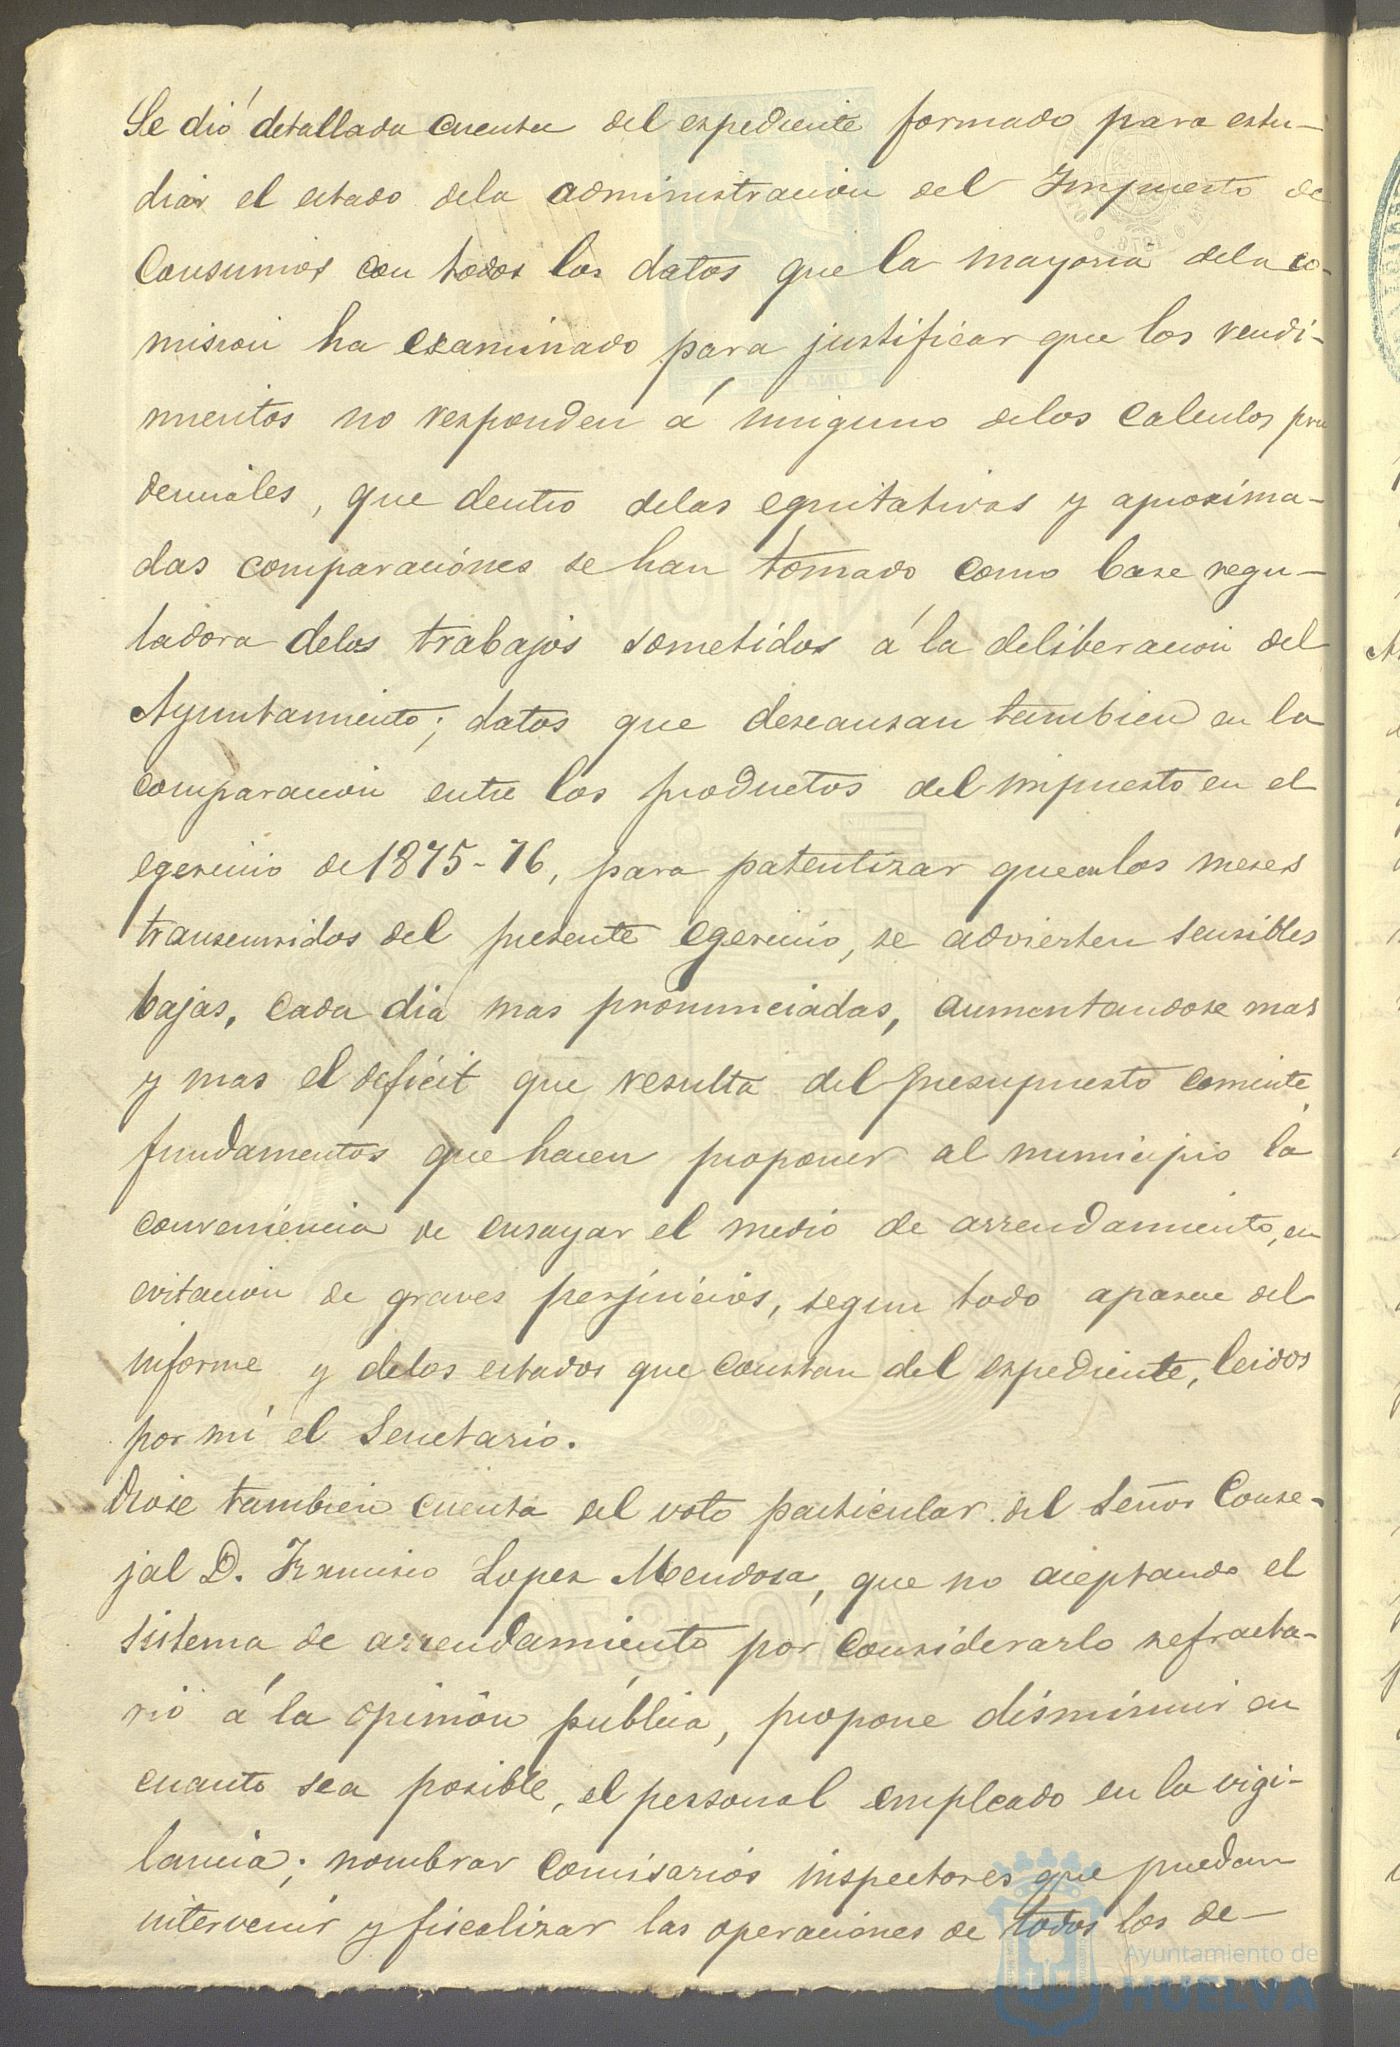 Se dió detallada cuenta del espediente formado para estu-
diar el estado dela administracion del Impuesto de
Consumos con todos los datos que la mayoria dela co-
mision ha examinado para justificar que los rendi-
mientos no responden á ninguno delos calculos pru
denciales, que dentro delas equitativas y aproxima-
das comparaciónes se han tomado como base regu-
ladora delos trabajos sometidos á la deliberacion del
Ayuntamiento; datos que descansan tambien en la
comparacion entre los productos del impuesto en el
egercicio de 1875-76, para patentizar que en los meses
transcurridos del presente egercicio, se advierten sensibles
bajas, cada dia mas pronunciadas, aumentandose mas
y mas el deficit que resulta del presupuesto corriente,
fundamentos que hacen proponer al municipio la
conveniencia de ensayar el medio de arrendamiento, en
evitacion de graves perjuicios, segun todo aparece del
informe y delos estados que constan del espediente, leidos
por mí el Secretario.
Diose tambien cuenta del voto particular del Señor Conse-
jal D. Francisco Lopez Mendoza, que no aceptando el
sistema de arrendamiento por considerarlo refracta-
rio á la opinión pública, propone disminuir en
cuanto sea posible, el personal empleado en la vigi-
lancia; nombrar comisarios inspectores que puedan
intervenir y fiscalizar las operaciones de todos los de-
Ayuntamiento de
HUELVA